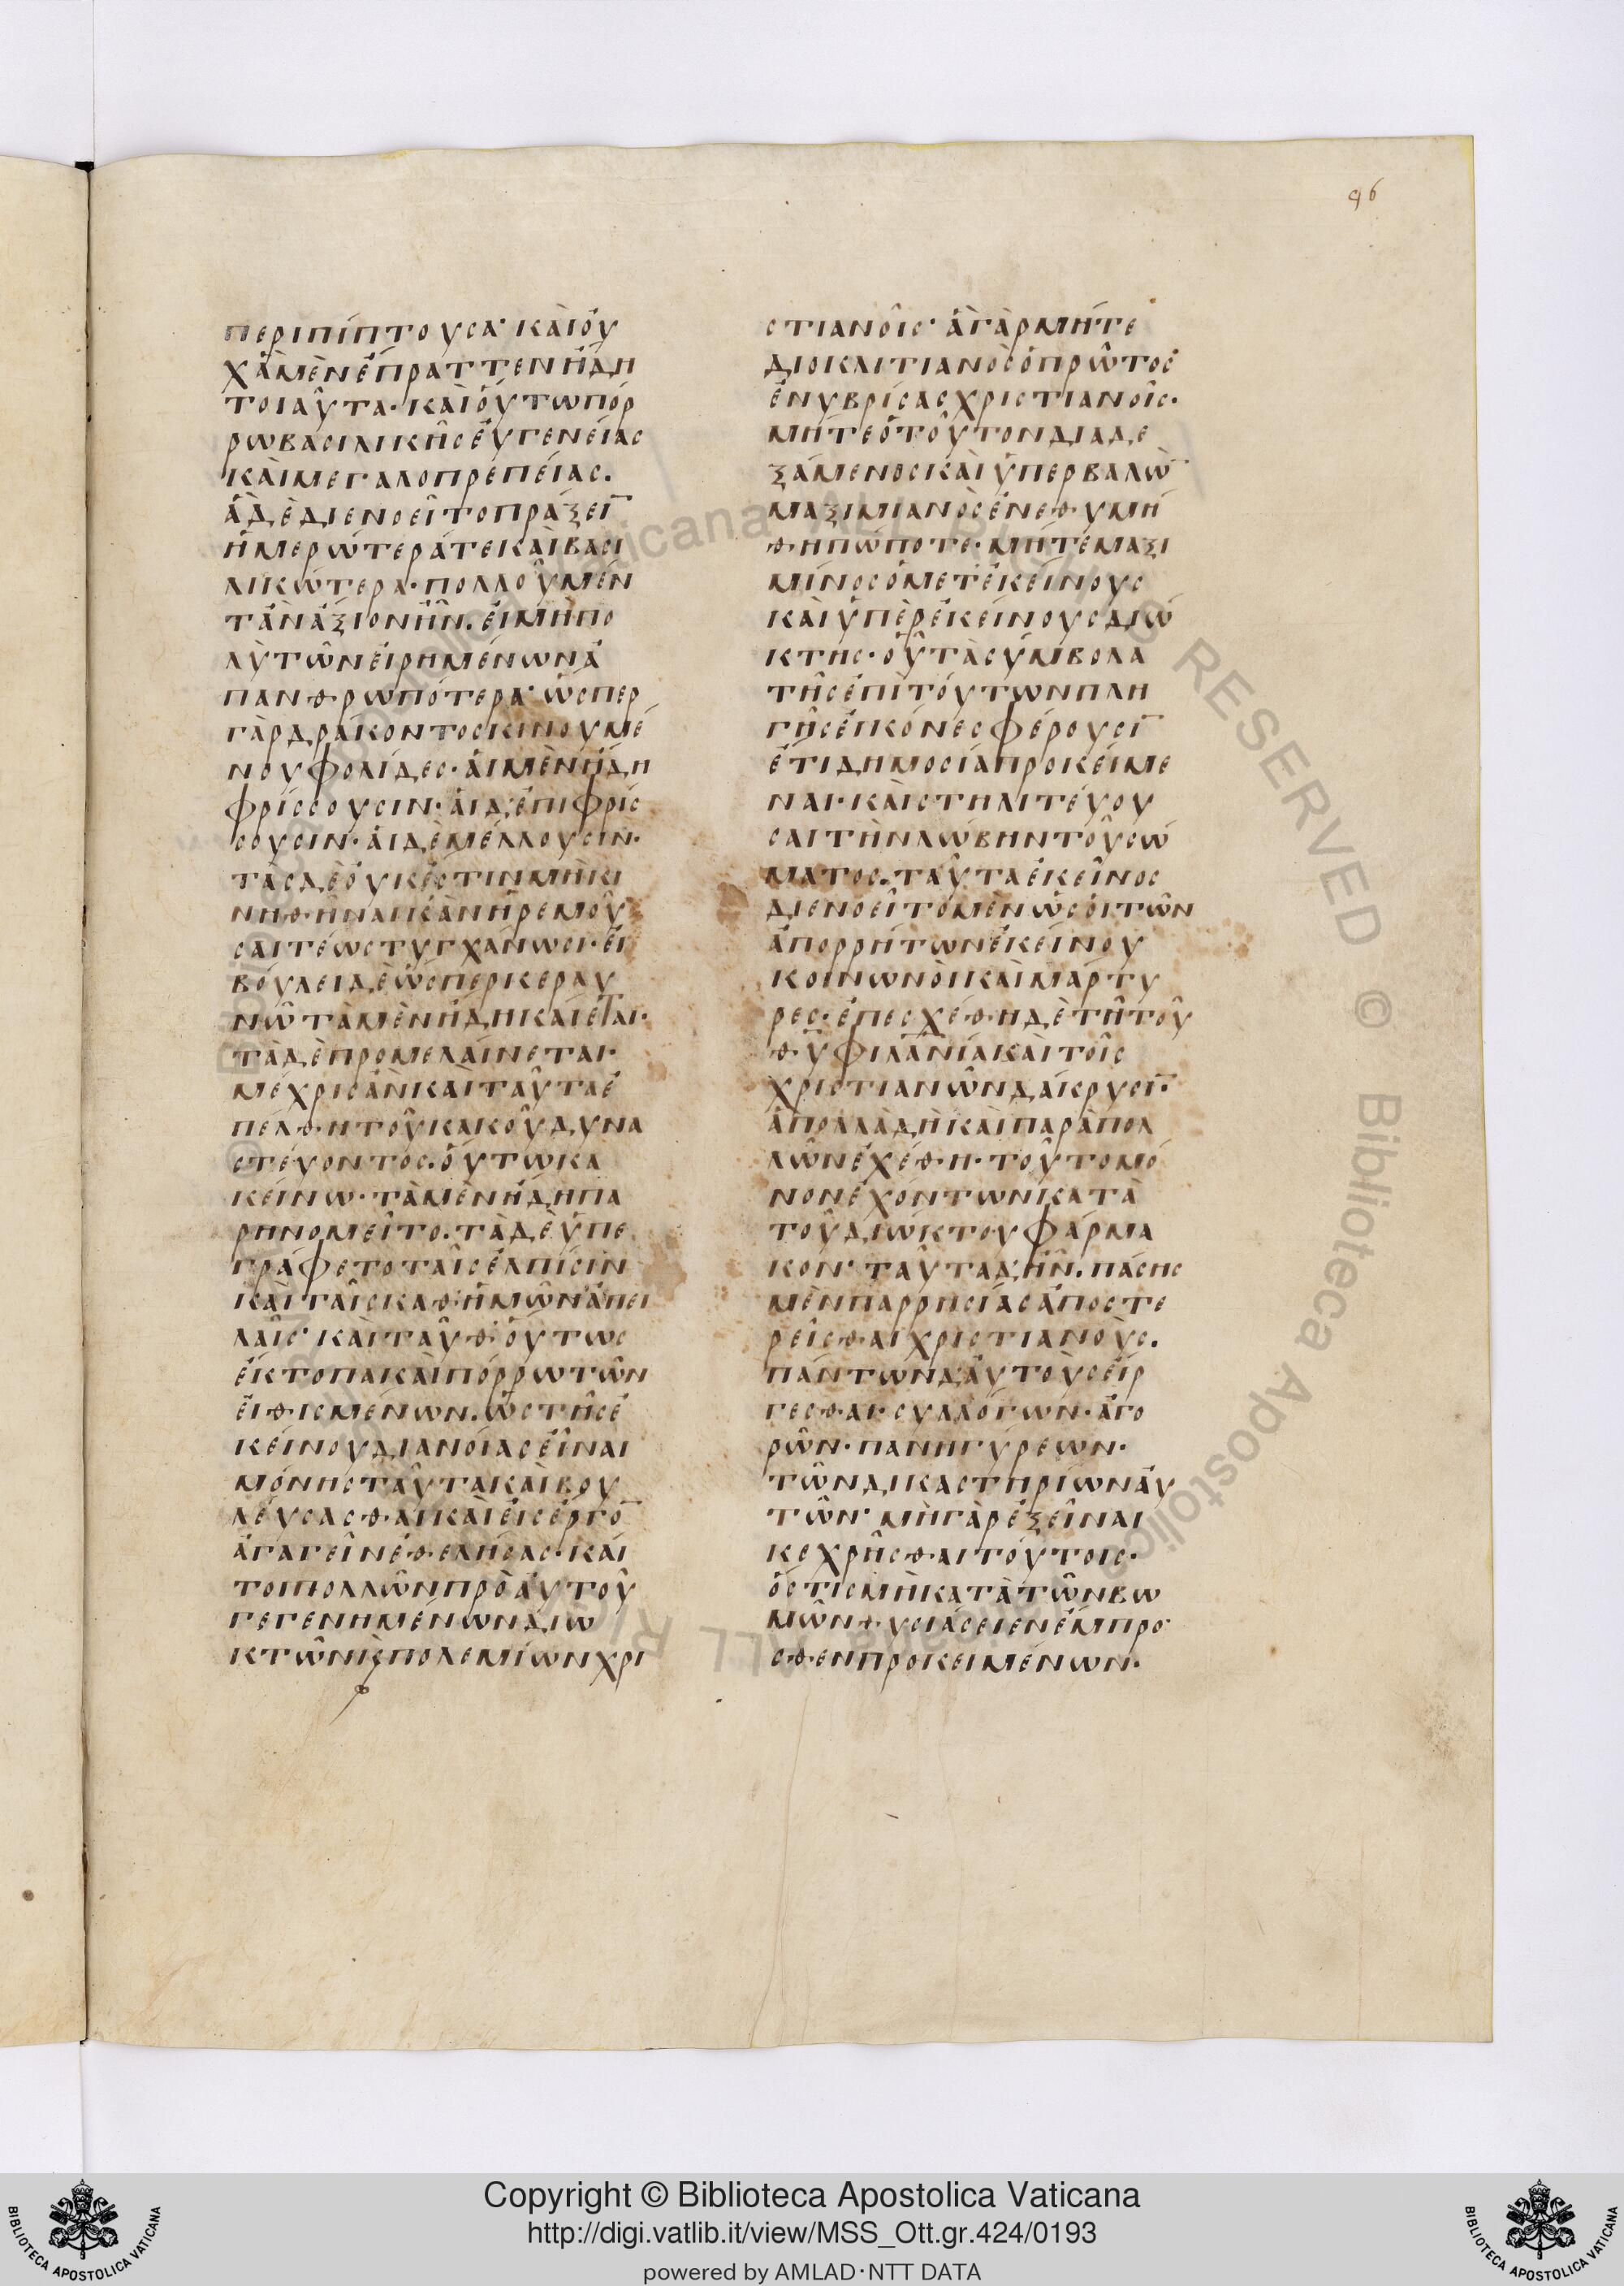 96
περιπίπτουσα· καὶ οὐ
χ' ἃ μὲν ἔπραττεν ἤδη
τοιαῦτα· καὶ οὕτω πόρ
ρω βασιλικῆς εὐγενείας
καὶ μεγαλοπρεπείας.
ἃ δὲ διενοεῖτο πράξει̅
ἡμερώτερά τε καὶ βασι
λικώτερα· πολλοῦ μέν
τ' ἂν ἄξιον ἦν. εἰ μὴ πο
λὺ τῶν εἰρημένων ἀ
πανθρωπότερα· ὥσπερ
γὰρ δράκοντος κινουμέ
νου φολίδες· αἱ μὲν ἤδη
φρίσσουσιν· αἱ δ' ἐπιφρίσ
σουσιν· αἱ δὲ μέλλουσιν·
τὰς δὲ οὐκ ἔστιν μὴ κι
νηθῆναι κἂν ἠρεμοῦ
σαι τέως τυγχάνωσι· εἰ
βούλει δὲ ὥσπερ κεραυ
νῷ τὰ μὲν ἤδη καίεται·
τὰ δὲ προμελαίνεται·
μέχρις ἂν καὶ ταῦτα ἐ
πέλθη τοῦ κακοῦ δυνα
στεύοντος. οὕτω κἀ
κείνω· τὰ μὲν ἤδη πα
ρηνομεῖτο. τὰ δὲ ὑπε
γράφετο ταῖς ἐλπίσιν
καὶ ταῖς καθ' ἡμῶν ἀπει
λαῖς· καὶ ταῦθ' οὕτως
ἔκτοπα καὶ πόρρω τῶν
εἰθισμένων. ὡς τῆς ἐ
κείνου διανοίας εἶναι
μόνης ταῦτα καὶ βου
λεύσασθαι καὶ εἰς ἔργο̅
ἀγαγεῖν ἐθελήσας· καί
τοι πολλῶν πρὸ αὐτοῦ
γεγενημένων διω
κτῶν κ̀ πολεμίων χρι
στιανοῖς· ἃ γὰρ μήτε
διοκλιτιανὸς ὁ πρῶτος
ἐνυβρίσας χριστιανοῖς·
μήτε ὁ τοῦτον διαδε
ξάμενος καὶ ὑπερβαλὼ̅
μαξιμιανὸς ἐνεθυμή
θη πώποτε· μήτε μαξι
μίνος ὁ μετ' ἐκείνους
καὶ ὑπὲρ ἐκείνους διώ
κτης· οὗ τὰ σύμβολα
τῆς ἐπὶ τούτων πλη
γῆς εἰκόνες φέρουσι̅
ἔτι δημοσία προκείμε
ναι· καὶ στηλιτεύου
σαι τὴν λώβην τοῦ σώ
ματος. ταῦτα ἐκεῖνος
διενοεῖτο μὲν ὡς οἱ τῶν
ἀπορρήτων ἐκείνου
κοινωνοὶ καὶ μάρτυ
ρες· ἐπεσχέθη δὲ τῆ τοῦ
θυ̅ φιλανι̅α καὶ τοῖς
χριστιανῶν δάκρυσι̅·
ἃ πολλὰ δὴ καὶ παρὰ πολ
λῶν ἐχέθη· τοῦτο μό
νον ἐχόντων κατὰ
τοῦ διώκτου φάρμα
κον· ταῦτα δ' ἦν. πάσης
μὲν παρρησίας ἀποστε
ρεῖσθαι χριστιανοὺς.
πάντων δ' αὐτοὺς εἴρ
γεσθαι· συλλόγων· ἀγο
ρῶν· πανηγύρεων·
τῶν δικαστηρίων αὐ
τῶν· μὴ γὰρ ἐξεῖναι
κεχρῆσθαι τούτοις·
ὅστις μὴ κατὰ τῶν βω
μῶν θυσιάσειεν ἔμπρο
σθεν προκειμένων·
Copyright © Biblioteca Apostolica Vaticana
http://digi.vatlib.it/view/MSS_Ott.gr.424/0193
powered by AMLAD·NTT DATA